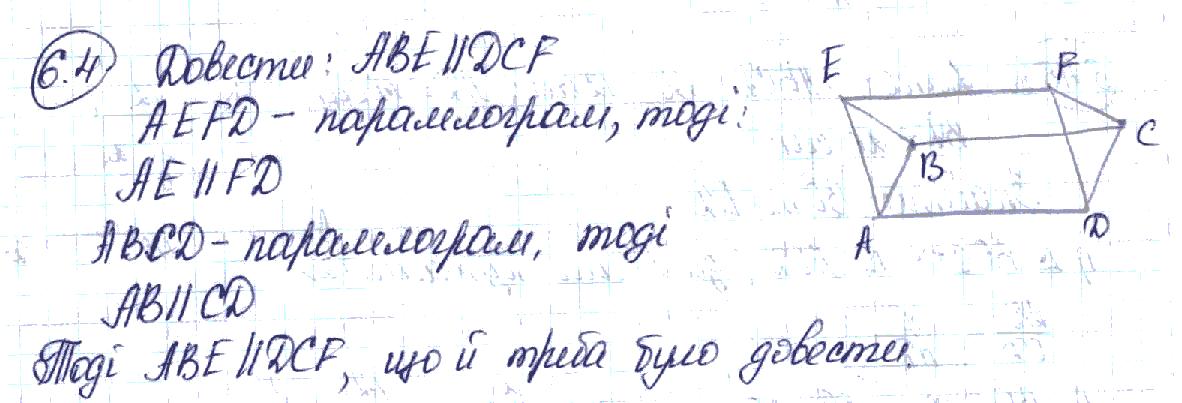 6.4 Довести: ABE||DCF
AEFD - паралелограм, тоді:
AE||FD
ABCD - паралелограм, тоді
AB||CD
Тоді ABE||DCF, що й треба було довести.
E
F
C
B
A
D